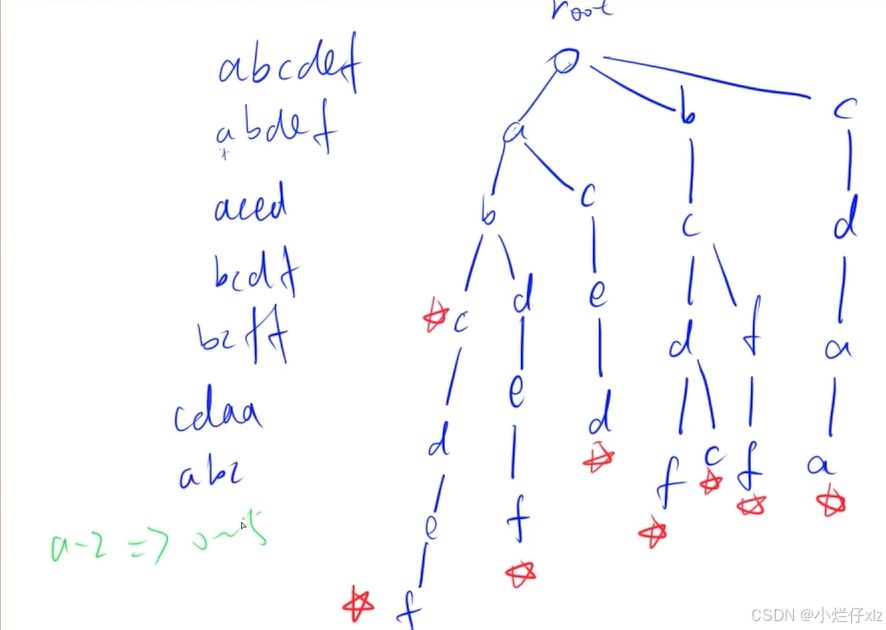 root
abcdef
abdef
aced
bcdf
bcff
cdaa
abc
a-z => 0~25
a b c
b c c d
c d e d f a
d e d f c f a
e f
f
CSDN @小烂仔xlz